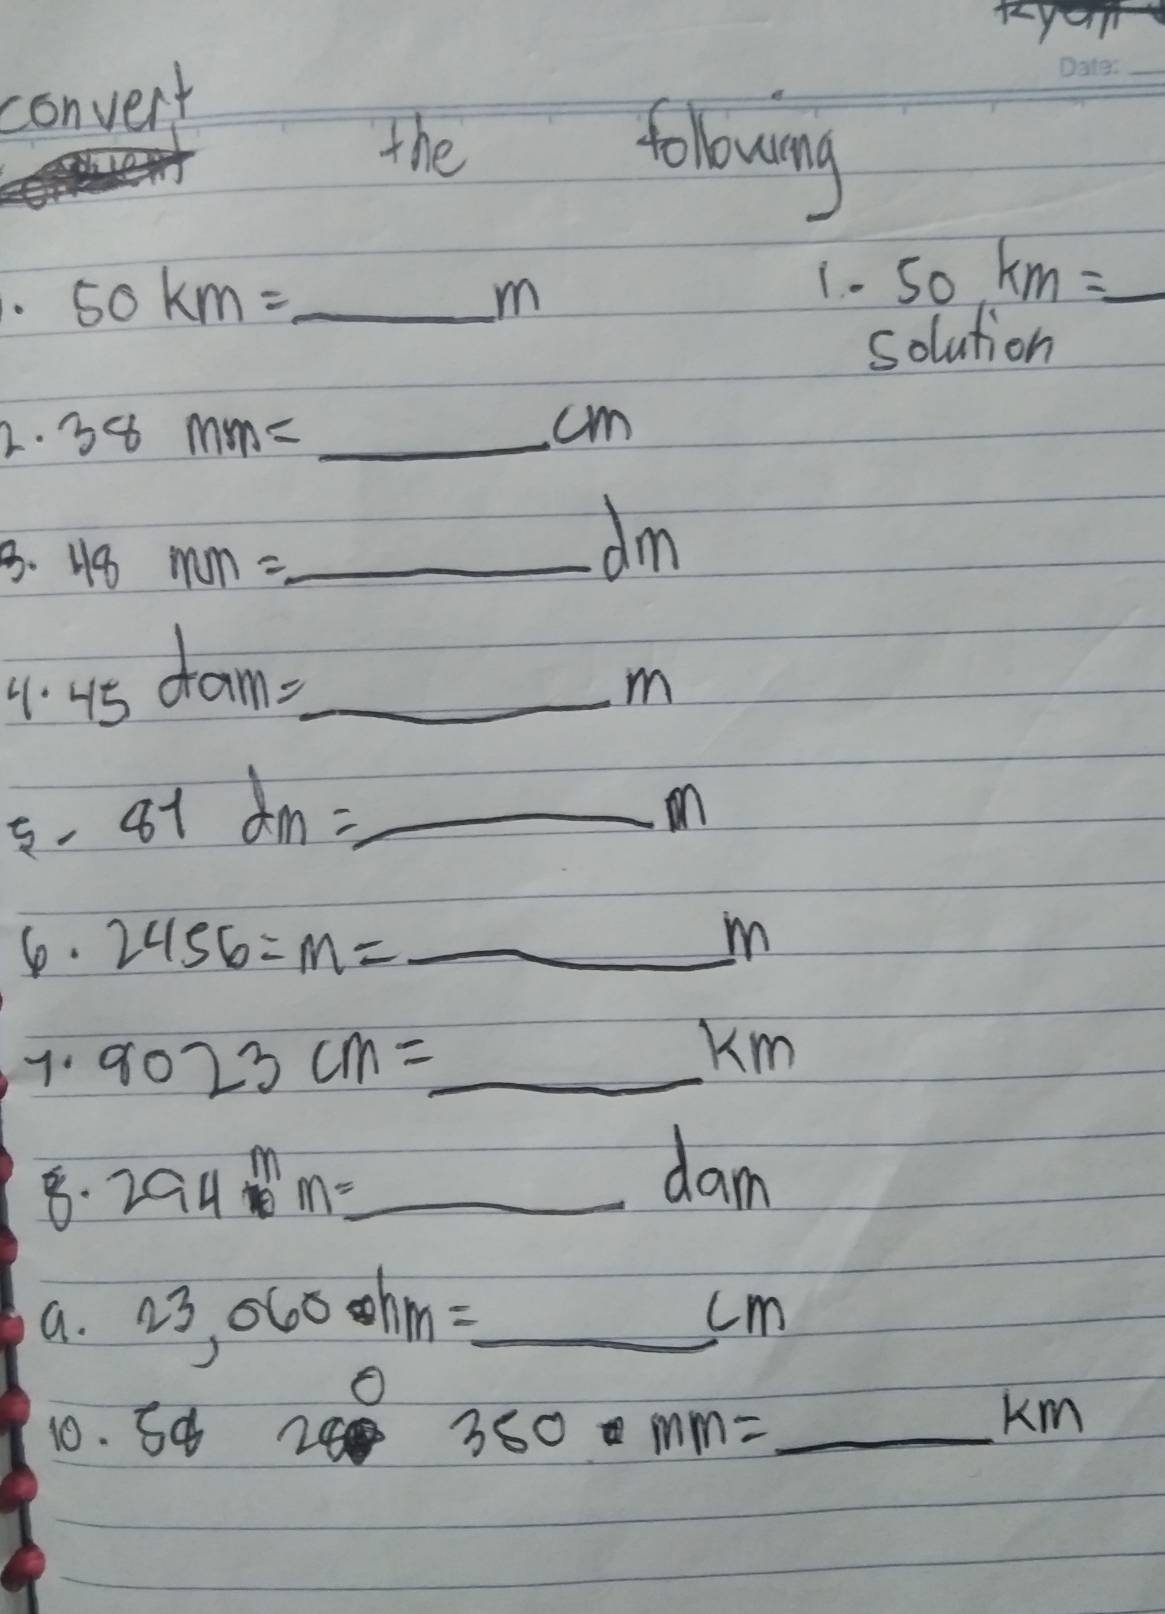 Date:
convert the following
1. 50 km = ____ m
1. 50 km = __
solution
2. 38 mm = ____ cm
3. 48 mm = ____ dm
4. 45 dam = ____ m
5. 81 dm = ____ m
6. 2456 = m = ____ m
7. 9023 cm = ____ km
8. 294 m m = ____ dam
9. 23,060 hm = ____ cm
10. 58 280 350 mm = ____ km